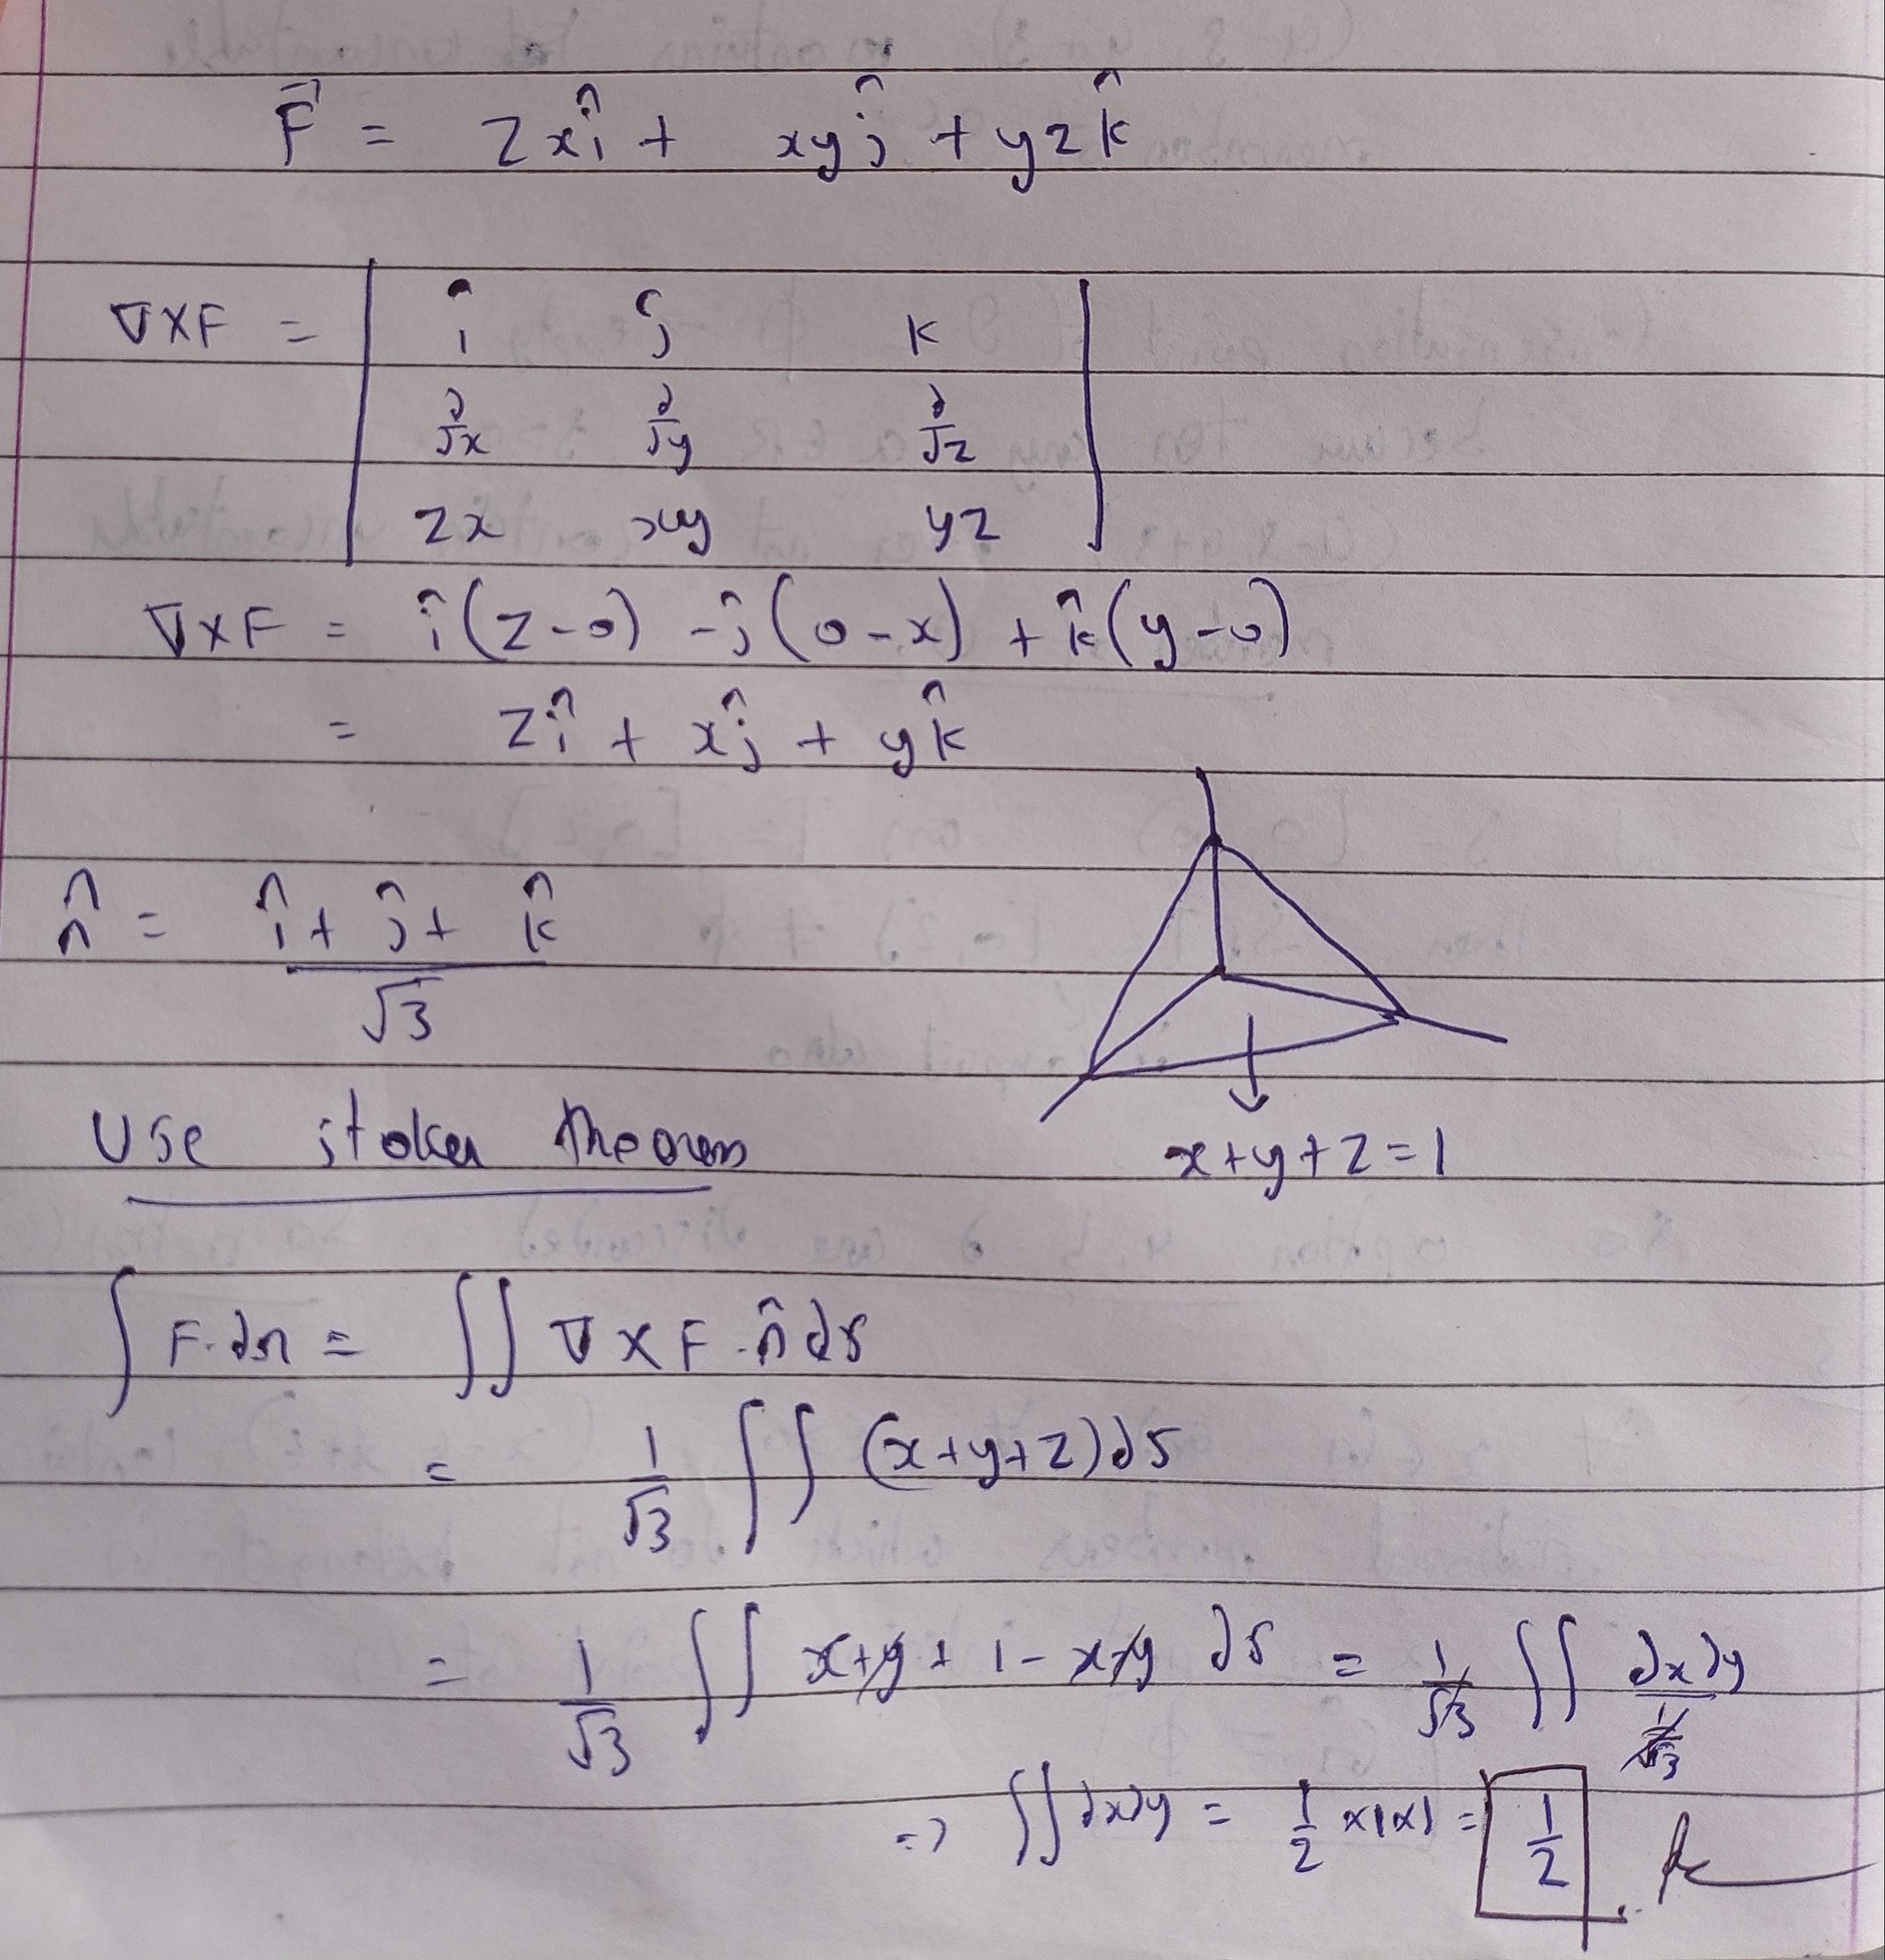 F⃗ = zxî + xyĵ + yzk̂
∇×F = | î ĵ k |
| ∂/∂x ∂/∂y ∂/∂z |
| zx xy yz |
∇×F = î(z-0) - ĵ(0-x) + k̂(y-0)
= zî + xĵ + yk̂
n̂ = (î + ĵ + k̂)/√3
x+y+z=1
Use stokes theorem
∫ F.dr = ∬ ∇×F.n̂ ds
= 1/√3 ∬ (x+y+z)ds
= 1/√3 ∬ x+y+1-x-y ds = 1/√3 ∬ dxdy/(1/√3)
=> ∬ dxdy = 1/2 ×1×1 = 1/2